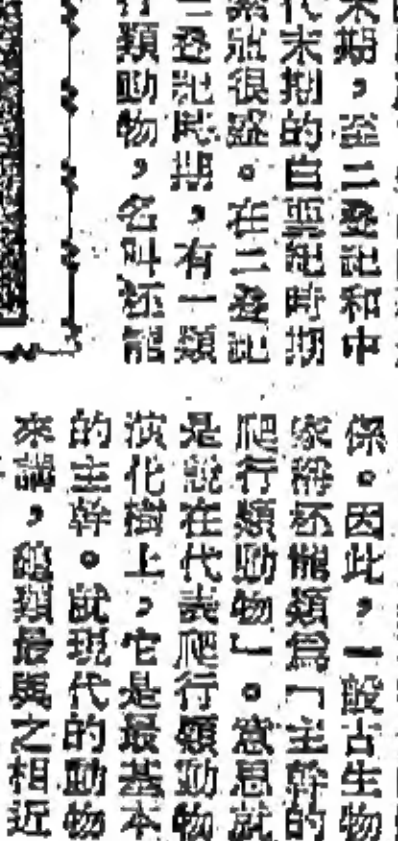 末期，至二疊紀和中
代末期的白堊紀時期
繁殖很盛。在二疊紀
二疊紀時期，有一類
行類動物，名叫杯龍
係。因此，一般古生物
家稱杯龍類爲「主幹的
爬行類動物」。意思就
是說在代表爬行類動物
演化樹上，它是最基本
的主幹。就現代的動物
來講，龜類最與之相近